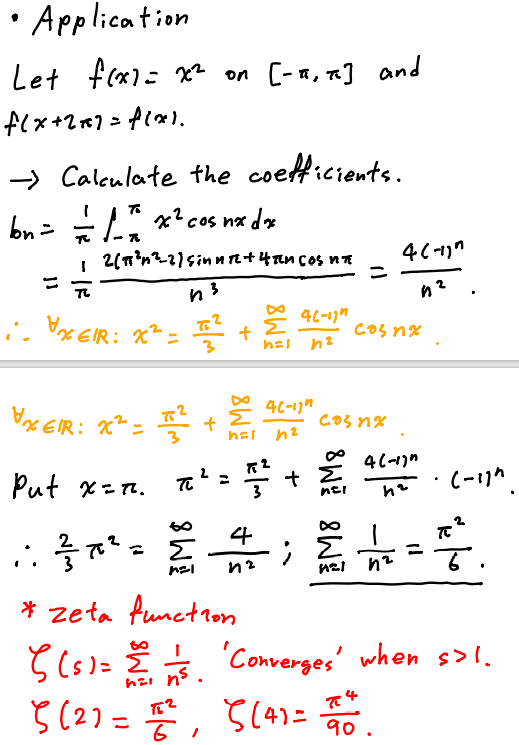 • Application
Let f(x) = x² on [-π, π] and
f(x+2π) = f(x).
→ Calculate the coefficients.
bn = 1/π ∫_{-π}^{π} x² cos nx dx
= 1/π 2(π²n²-2) sin nπ + 4πn cos nπ / n³ = 4(-1)ⁿ / n² .
∴ ∀x∈ℝ: x² = π²/3 + Σ_{n=1}^{∞} 4(-1)ⁿ/n² cos nx .
∀x∈ℝ: x² = π²/3 + Σ_{n=1}^{∞} 4(-1)ⁿ/n² cos nx .
Put x = π. π² = π²/3 + Σ_{n=1}^{∞} 4(-1)ⁿ/n² · (-1)ⁿ.
∴ 2/3 π² = Σ_{n=1}^{∞} 4/n² ; Σ_{n=1}^{∞} 1/n² = π²/6 .
* zeta function
ζ(s) = Σ_{n=1}^{∞} 1/nˢ . 'Converges' when s>1.
ζ(2) = π²/6 , ζ(4) = π⁴/90 .